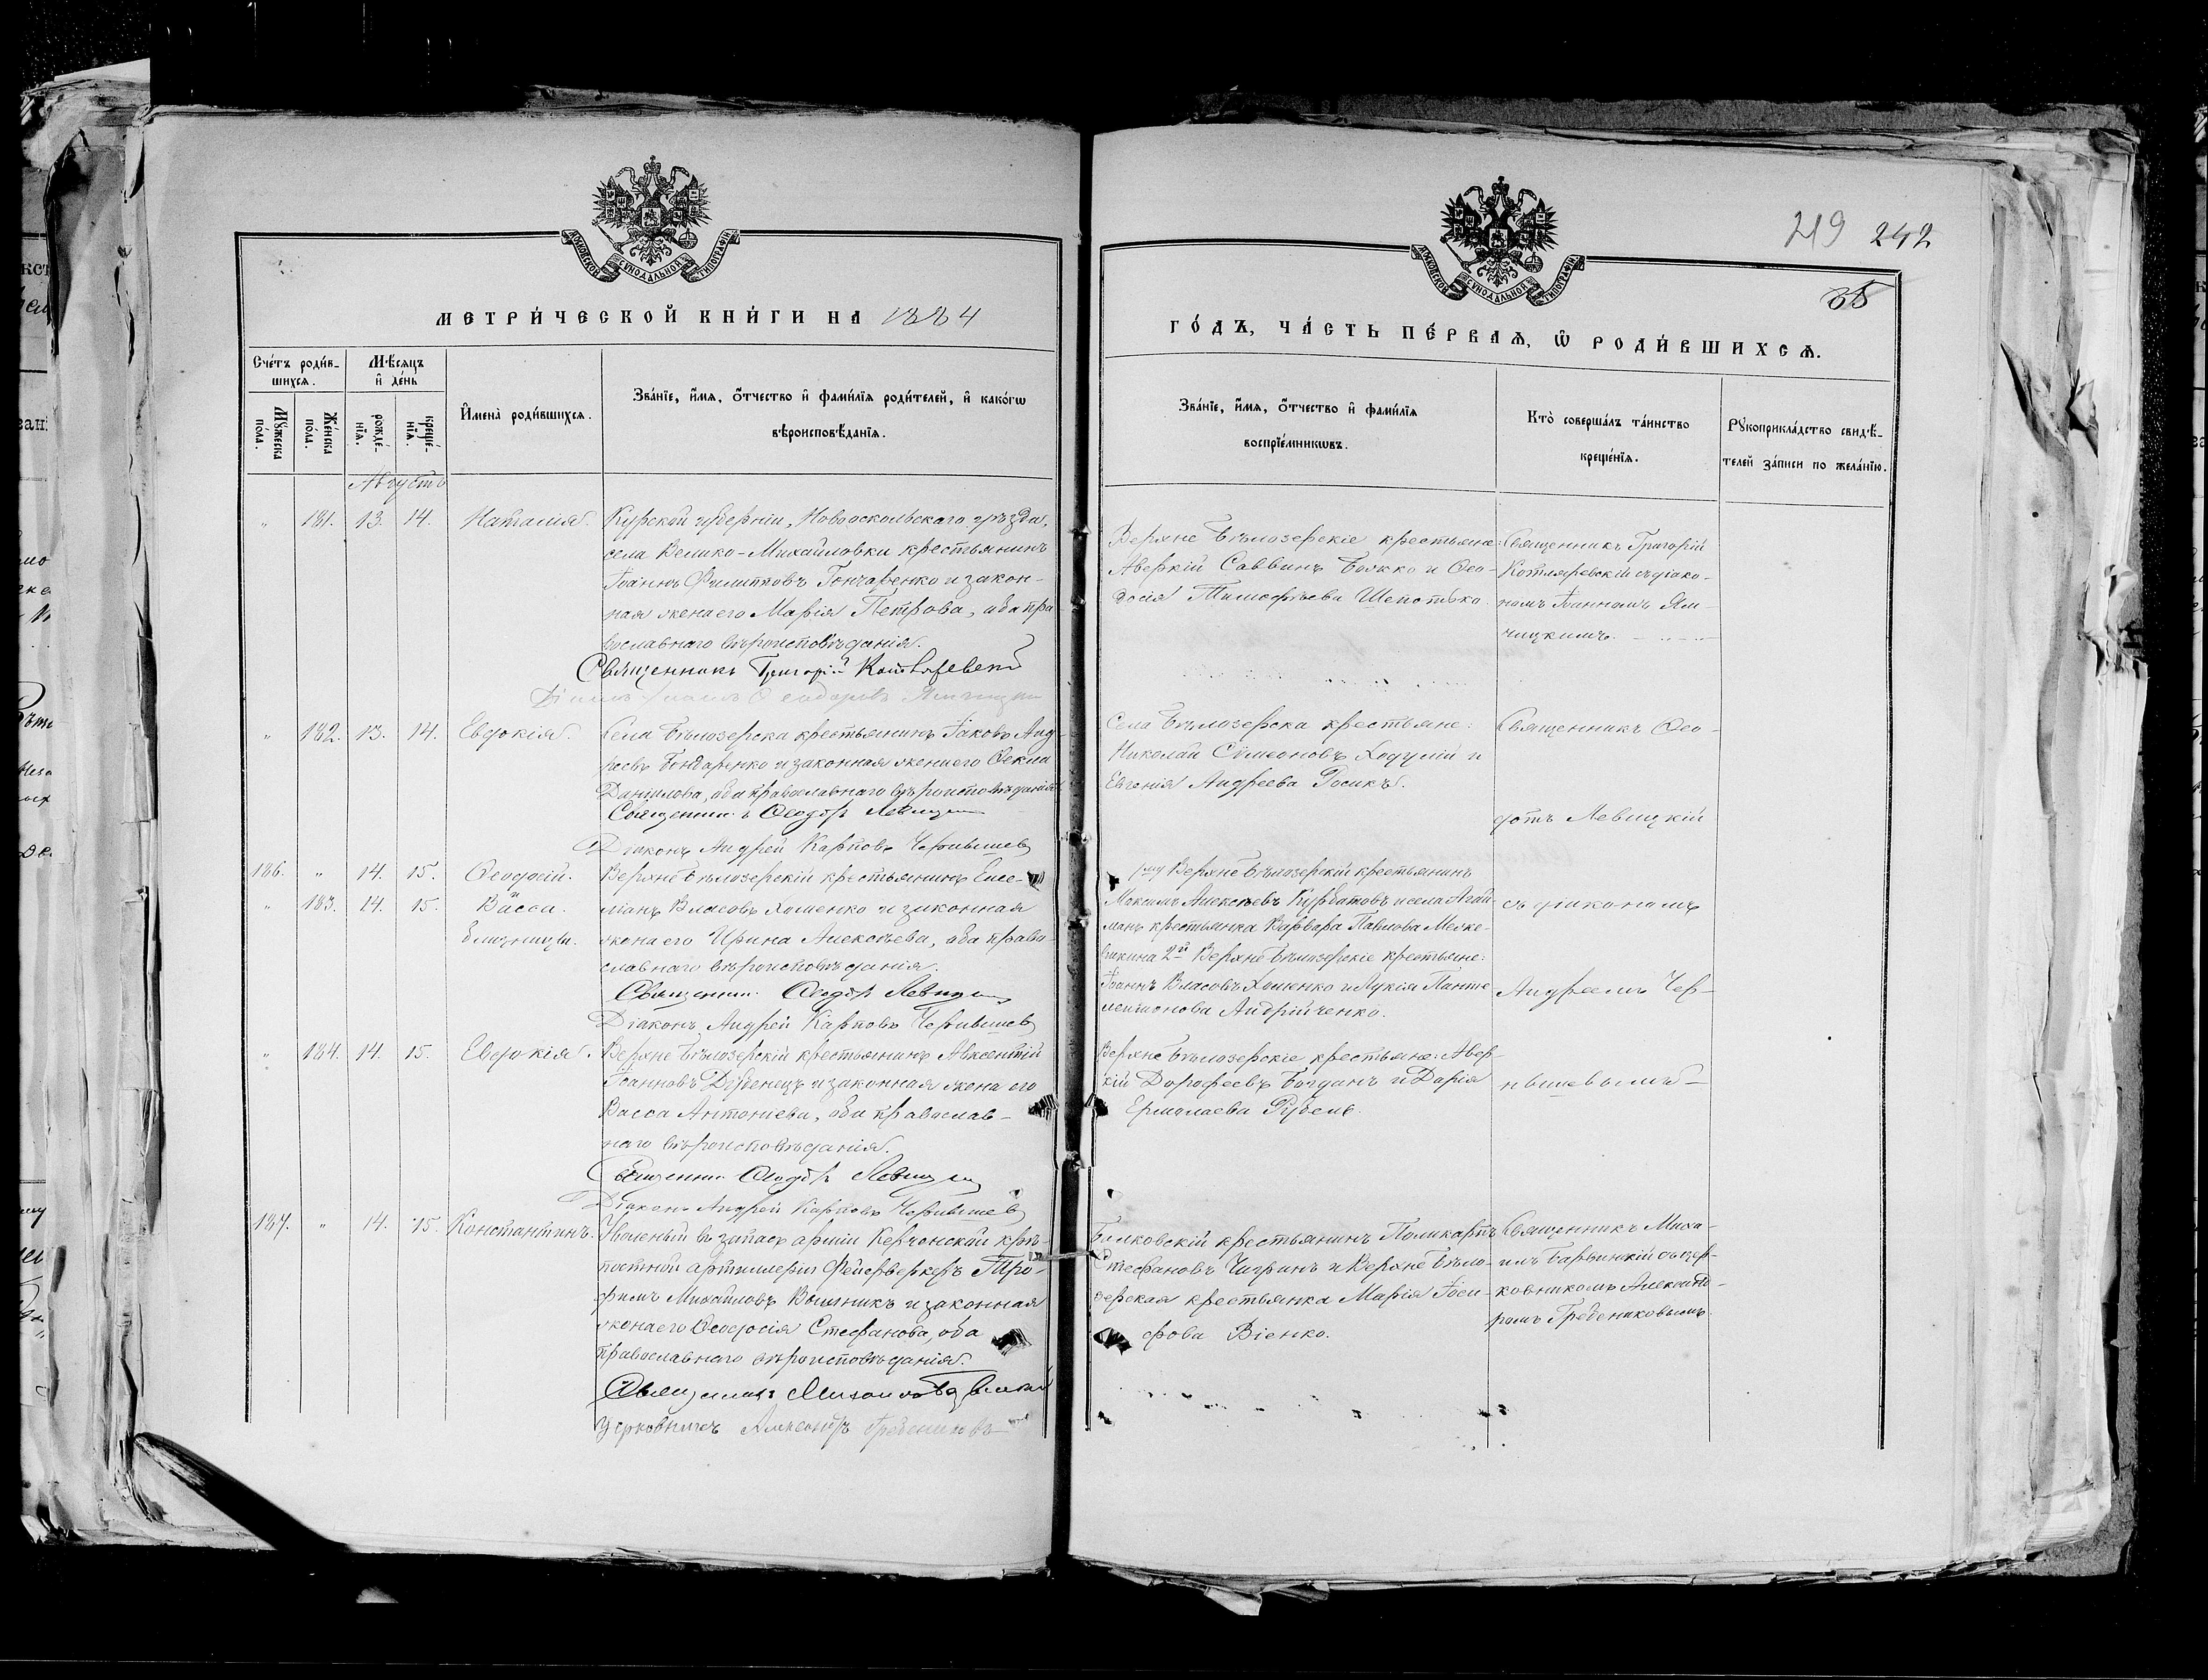 МОСКОВСКОЙ СѴНОДАЛЬНОЙ ТИПОГРАФІИ
МЕТРИ́ЧЕСКОЙ КНИ́ГИ НА 1884
Сче́тъ роди́в-
шихсѧ.
Мѣ́сѧцъ
и҆ де́нь
Мꙋ́жеска
по́ла.
Же́нска
по́ла.
рожде́-
нїѧ.
креще́-
нїѧ.
И҆мена̀ роди́вшихсѧ.
Зва́нїе, и҆́мѧ, ѻ҆́тчество и҆ фами́лїѧ роди́телей, и҆ како́гѡ
вѣроисповѣ́данїѧ.
Августъ
" 181. 13. 14. Наталія.
Курской губерніи, Новооскольскаго уѣзда,
села Велико-Михайловки крестьянинъ
Іоаннъ Филипповъ Гончаренко и закон-
ная жена его Марія Петрова, оба пра
вославнаго вѣроисповѣданія.
Священникъ Григорій Котляревскій
" 182. 13. 14. Евдокія.
Села Бѣлозерки крестьянинъ Іаковъ Анд-
реевъ Бондаренко и законная жена его Ѳекла
Данилова, оба православнаго вѣроисповѣданія
Священникъ Ѳеодотъ Левицкій
Діаконъ Андрей Карповъ Чернышевъ
186. " 14. 15. Ѳеодосій.
" 183. 14. 15. и Васса.
близнецы.
Верхне Бѣлозерскій крестьянинъ Еме-
ліанъ Власовъ Хоменко и законная
жена его Ирина Алексѣева, оба право-
славнаго вѣроисповѣданія.
Священникъ Ѳеодотъ Левицкій
Діаконъ Андрей Карповъ Чернышевъ
" 184. 14. 15. Евдокія.
Верхне Бѣлозерскій крестьянинъ Авксентій
Іоанновъ и законная жена его
Васса Антоніева, оба православ-
наго вѣроисповѣданія.
Священникъ Ѳеодотъ Левицкій
Діаконъ Андрей Карповъ Чернышевъ
187. " 14. 15. Константинъ.
Уволеный въ запасъ арміи Керченской крѣ-
постной артиллеріи Фейерверкеръ Тро-
фимъ Михайловъ и законная
жена его Ѳеодосія Стефанова, оба
православнаго вѣроисповѣданія.
Священникъ Михаилъ
Церковникъ Александръ Гребениковъ
МОСКОВСКОЙ СѴНОДАЛЬНОЙ ТИПОГРАФІИ
219 242
35
ГО́ДЪ, ЧА́СТЬ ПЕ́РВАѦ, Ѡ҆ РОДИ́ВШИХСѦ.
Зва́нїе, и҆́мѧ, ѻ҆́тчество и҆ фами́лїѧ
воспрїе́мникѡвъ.
Кто̀ соверша́лъ та́инство
креще́нїѧ.
Рꙋкоприкла́дство свидѣ́-
телей за́писи по жела́нїю.
Верхне Бѣлозерскіе крестьяне:
Аверкій Саввинъ Божко и Ѳео-
досія Тимофѣева
Священникъ Григорій
Котляревскій съ діако-
номъ Іоанномъ Ям-
ницкимъ.
Села Бѣлозерки крестьяне:
Николай Сѵмеоновъ и
Евгенія Андреева
Священникъ Ѳео-
дотъ Левицкій
1му Верхне Бѣлозерскій крестьянинъ
Максимъ Алексѣевъ Курбатовъ и села Агай
манъ крестьянка Варвара Павлова
2й Верхне Бѣлозерскіе крестьяне:
Іоаннъ Власовъ Хоменко и Лукія Панте
леимонова Андрійченко.
съ діакономъ
Андреемъ Чер-
Верхне Бѣлозерскіе крестьяне: Авер-
кій Дорофеевъ Богданъ и Дарія
Ермолаева
нышевымъ
крестьянинъ Поликарпъ
Стефановъ Чигринъ и Верхне Бѣло-
зерская крестьянка Марія Іоси-
фова Віенко.
Священникъ Миха-
илъ съ цер-
ковникомъ Александ-
ромъ Гребениковымъ.